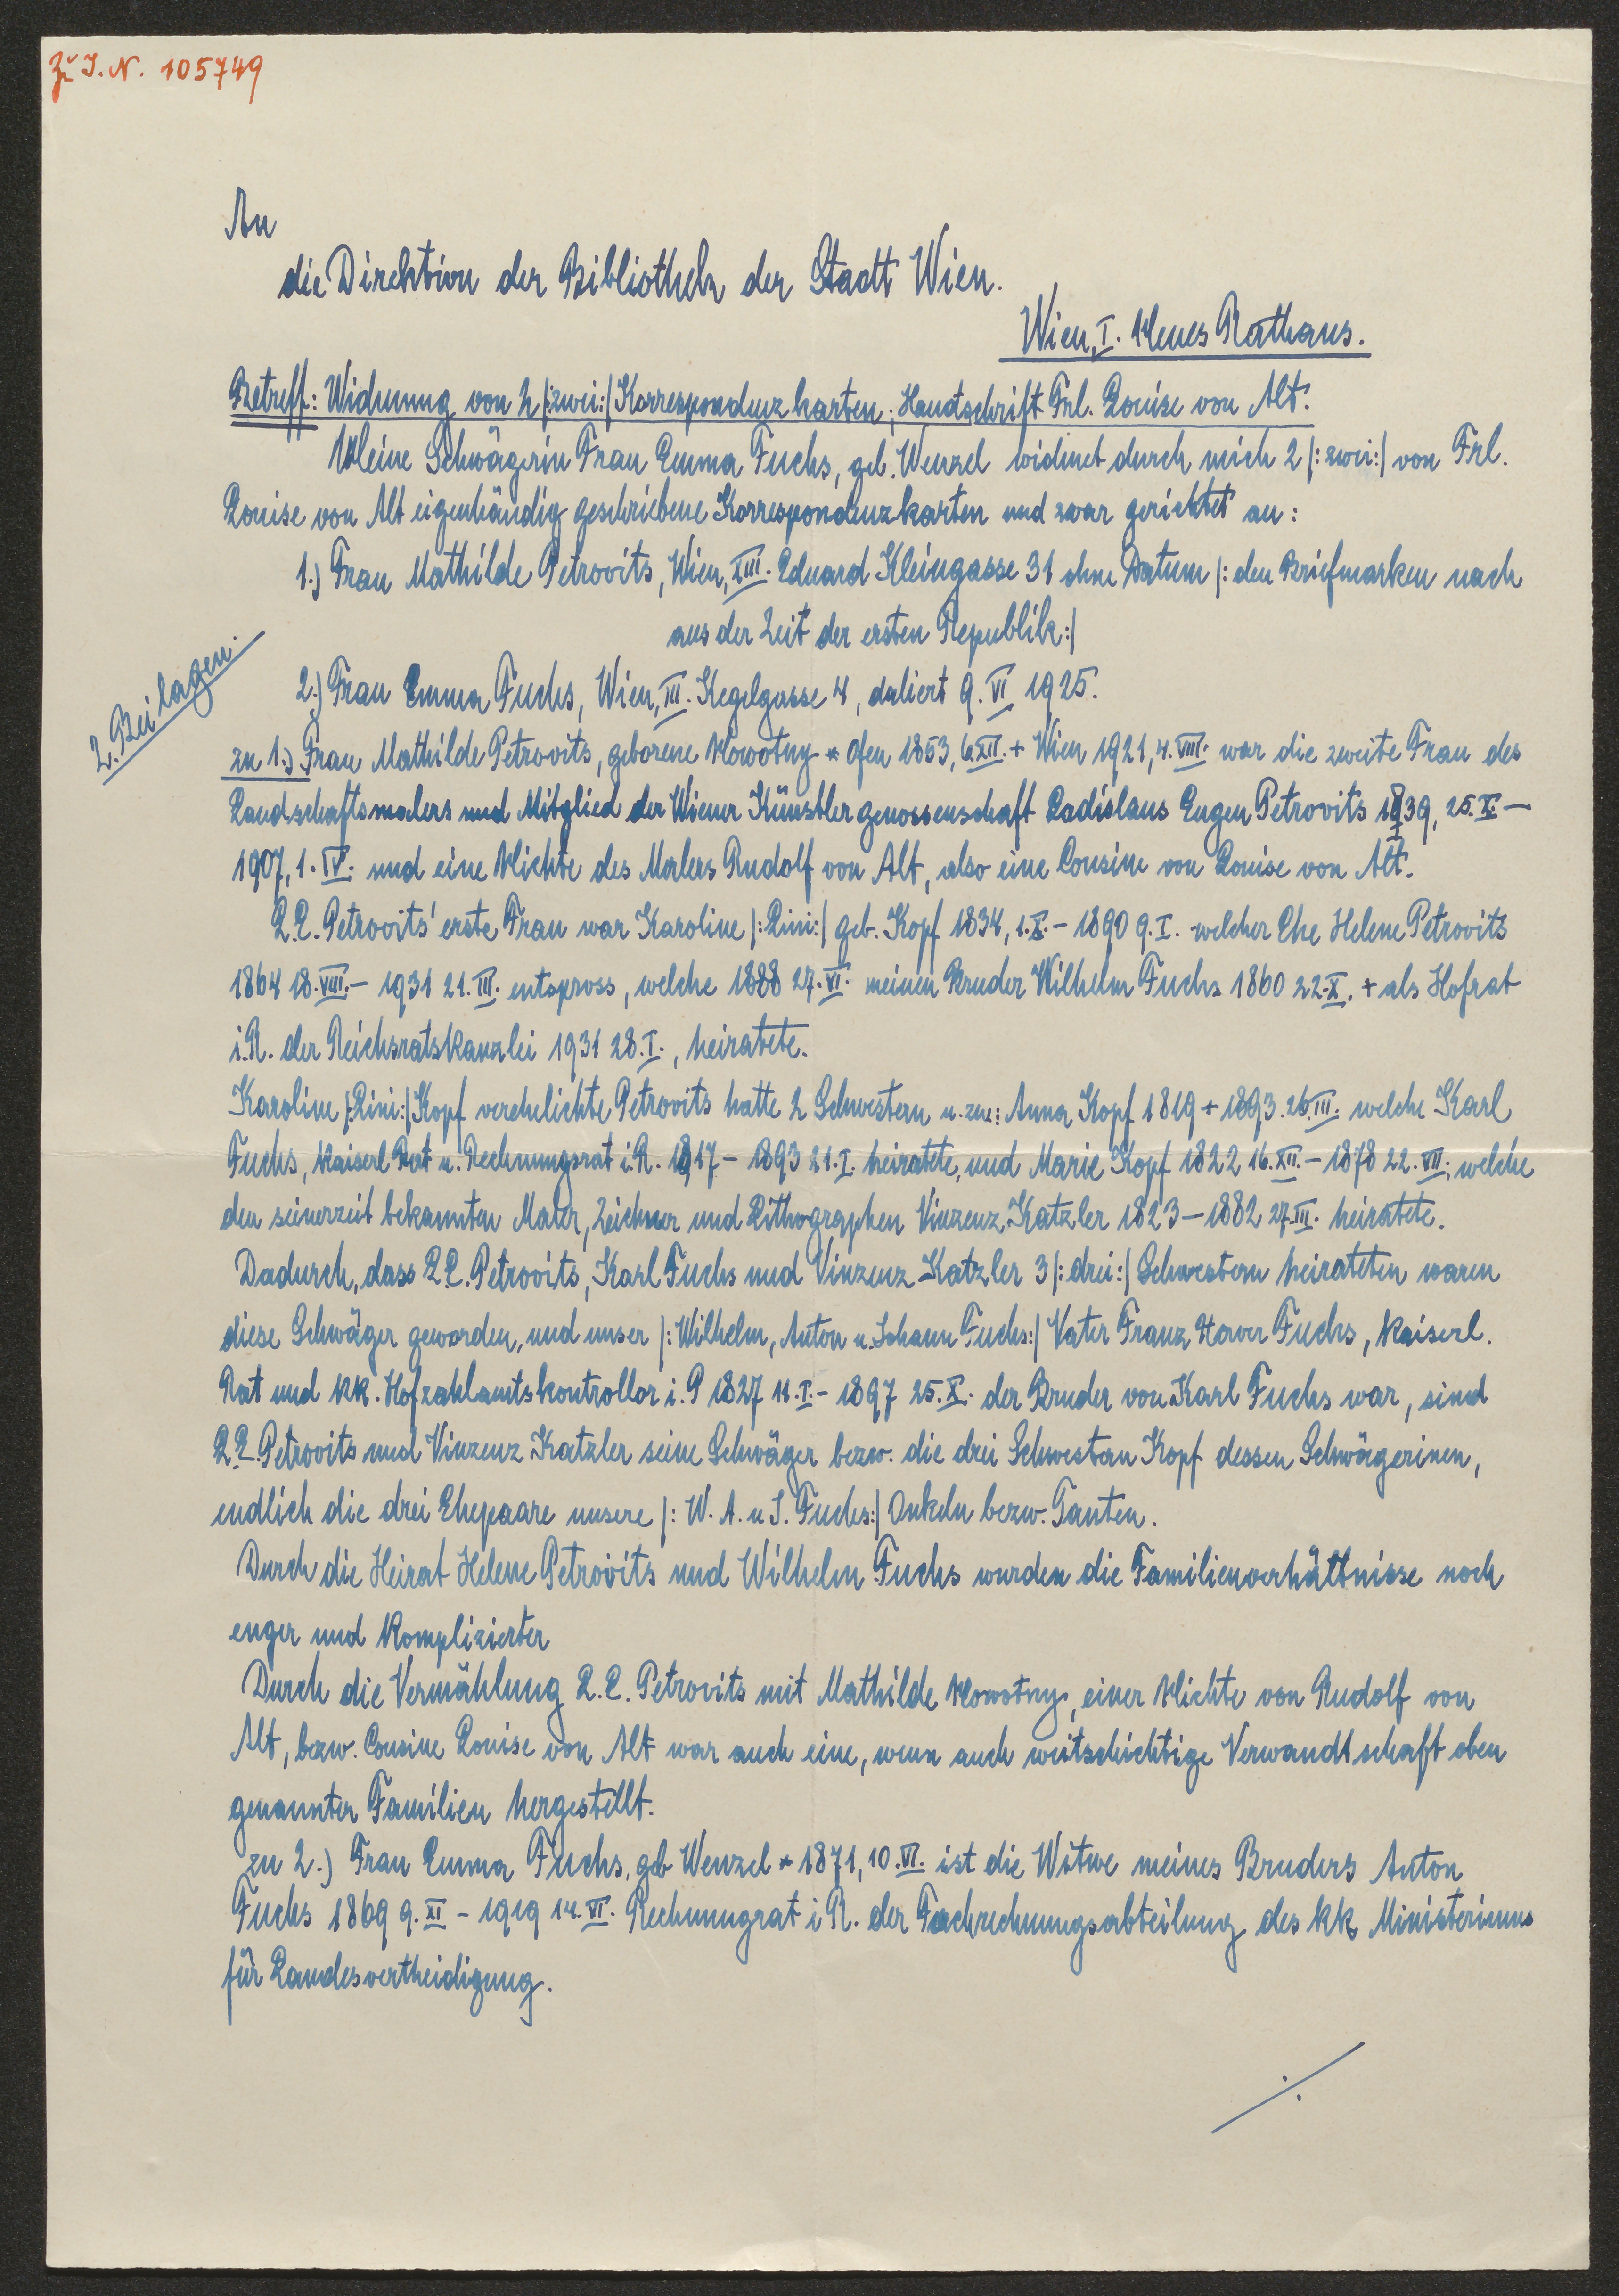 Zu I. N. 105749
An
die Direktion der Bibliothek der Stadt Wien.
Wien, I. Neues Rathaus.
Betreff: Widmung von 2 /:zwei:/ Korrespondenzkarten, Handschrift Frl. Louise von Alt.
Meine Schwägerin Frau Emma Fuchs, geb. Wenzel widmet durch mich 2 /:zwei:/ von Frl.
Louise von Alt eigenhändig geschriebene Korrespondenzkarten und zwar gerichtet an:
1.) Frau Mathilde Petrovits, Wien, XIII. Eduard Kleingasse 31 ohne Datum /: den Briefmarken nach
aus der Zeit der ersten Republik:/
2.) Frau Emma Fuchs, Wien, III. Kegelgasse 4, datiert 9. VI 1925.
2. Beilagen.
zu 1.) Frau Mathilde Petrovits, geborene Nowotny * Ofen 1853, 6. XII. + Wien 1921, 4. VIII. war die zweite Frau des
Landschaftsmalers und Mitglied der Wiener Künstlergenossenschaft Ladislaus Eugen Petrovits 1839, 25. X. –
1907, 1. IV. und eine Nichte des Malers Rudolf von Alt, also eine Cousine von Louise von Alt.
L.E. Petrovits' erste Frau war Karoline /:Lini:/ geb. Kopf 1834, 1. X. – 1890 9. I. welcher Ehe Helene Petrovits
1864 18. VIII. – 1931 21. III. entspross, welche 1888 27. VI. meinen Bruder Wilhelm Fuchs 1860 22. X. + als Hofrat
i.R. der Reichsratskanzlei 1931 28. I., heiratete.
Karoline /:Lini:/ Kopf verehelichte Petrovits hatte 2 Schwestern u. zw.: Anna Kopf 1819 + 1893. 26. III. welche Karl
Fuchs, Kaiserl Rat u. Rechnungsrat i.R. 1817 – 1893 21. I. heiratete, und Marie Kopf 1822 16. XII. – 1878 22. VII. welche
den seinerzeit bekannten Maler, Zeichner und Lithographen Vinzenz Katzler 1823 – 1882 27. III. heiratete.
Dadurch, dass L.E. Petrovits, Karl Fuchs und Vinzenz Katzler 3 /:drei:/ Schwestern heirateten waren
diese Schwäger geworden, und unser /: Wilhelm, Anton u. Johann Fuchs:/ Vater Franz Xaver Fuchs, Kaiserl.
Rat und kk. Hofzahlamtskontrollor i. P 1827 11. I. – 1897 25. X. der Bruder von Karl Fuchs war, sind
L.E. Petrovits und Vinzenz Katzler seine Schwäger bezw. die drei Schwestern Kopf dessen Schwägerinen,
endlich die drei Ehepaare unsere /: W. A. u J. Fuchs:/ Onkeln bezw. Tanten.
Durch die Heirat Helene Petrovits und Wilhelm Fuchs wurden die Familienverhältnisse noch
enger und komplizierter
Durch die Vermählung L.E. Petrovits mit Mathilde Nowotny, einer Nichte von Rudolf von
Alt, bezw. Cousine Louise von Alt war auch eine, wenn auch weitschichtige Verwandtschaft oben
genannter Familien hergestellt.
zu 2.) Frau Emma Fuchs, geb Wenzel * 1871, 10. VI. ist die Witwe meines Bruders Anton
Fuchs 1869 9. XI – 1919 14. VI. Rechnungrat i R. der Fachrechnungsabteilung des kk Ministeriums
für Landesvertheidigung.
./.